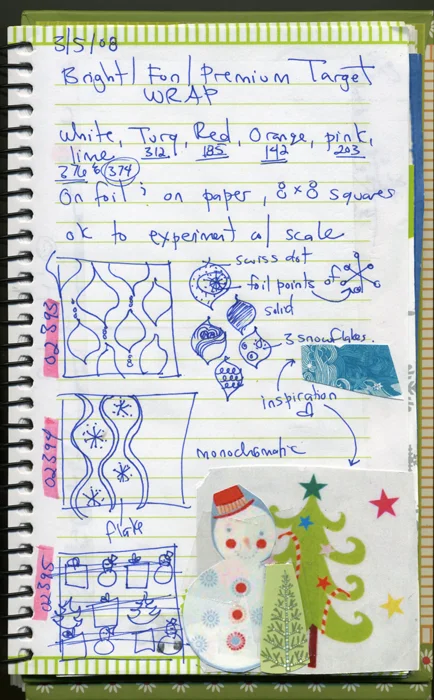 3/5/08
Bright/Fun/Premium Target
WRAP
White, Turq, Red, Orange, pink,
312 185 142 203
lime
376 & 374
On foil & on paper, 8 x 8 squares
ok to experiment w/ scale
swiss dot
foil points of
solid
3 snowflakes.
02393
inspiration
02394
monochromatic
flake
02395